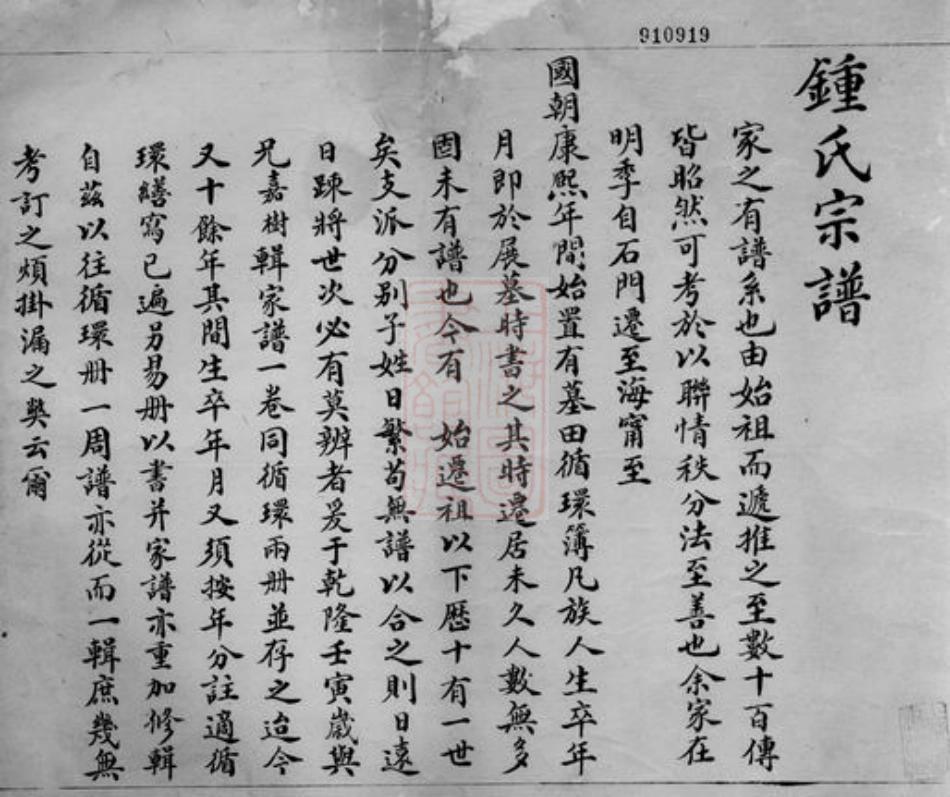 910919
鍾氏宗譜
家之有譜系也由始祖而遞推之至數十百傳
皆昭然可考於以聯情秩分法至善也余家在
明季自石門遷至海甯至
國朝康熙年間始置有墓田循環簿凡族人生卒年
月即於展墓時書之其時遷居未久人數無多
固未有譜也今有 始遷祖以下歷十有一世
矣支派分别子姓日繁苟無譜以合之則日遠
日踈將世次必有莫辨者爰于乾隆壬寅歲與
兄嘉樹輯家譜一卷同循環兩册並存之迨今
又十餘年其間生卒年月又須按年分註適循
環繕寫已遍另易册以書并家譜亦重加修輯
自茲以往循環册一周譜亦從而一輯庶幾無
考訂之煩掛漏之獘云爾